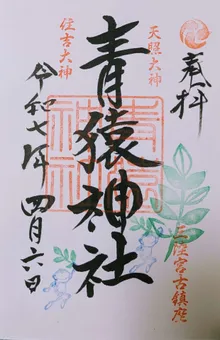 奉拝
三陸宮古鎮座
天照大神
青猿神社
住吉大神
令和七年四月六日